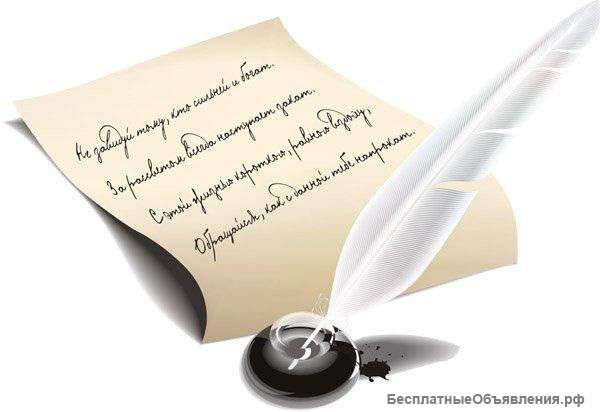 Не завидуй тому, кто сильней и богат.
За рассветом всегда наступает закат.
С этой жизнью короткою, равною вздоху,
Обращайся, как с данной тебе напрокат.
БесплатныеОбъявления.рф